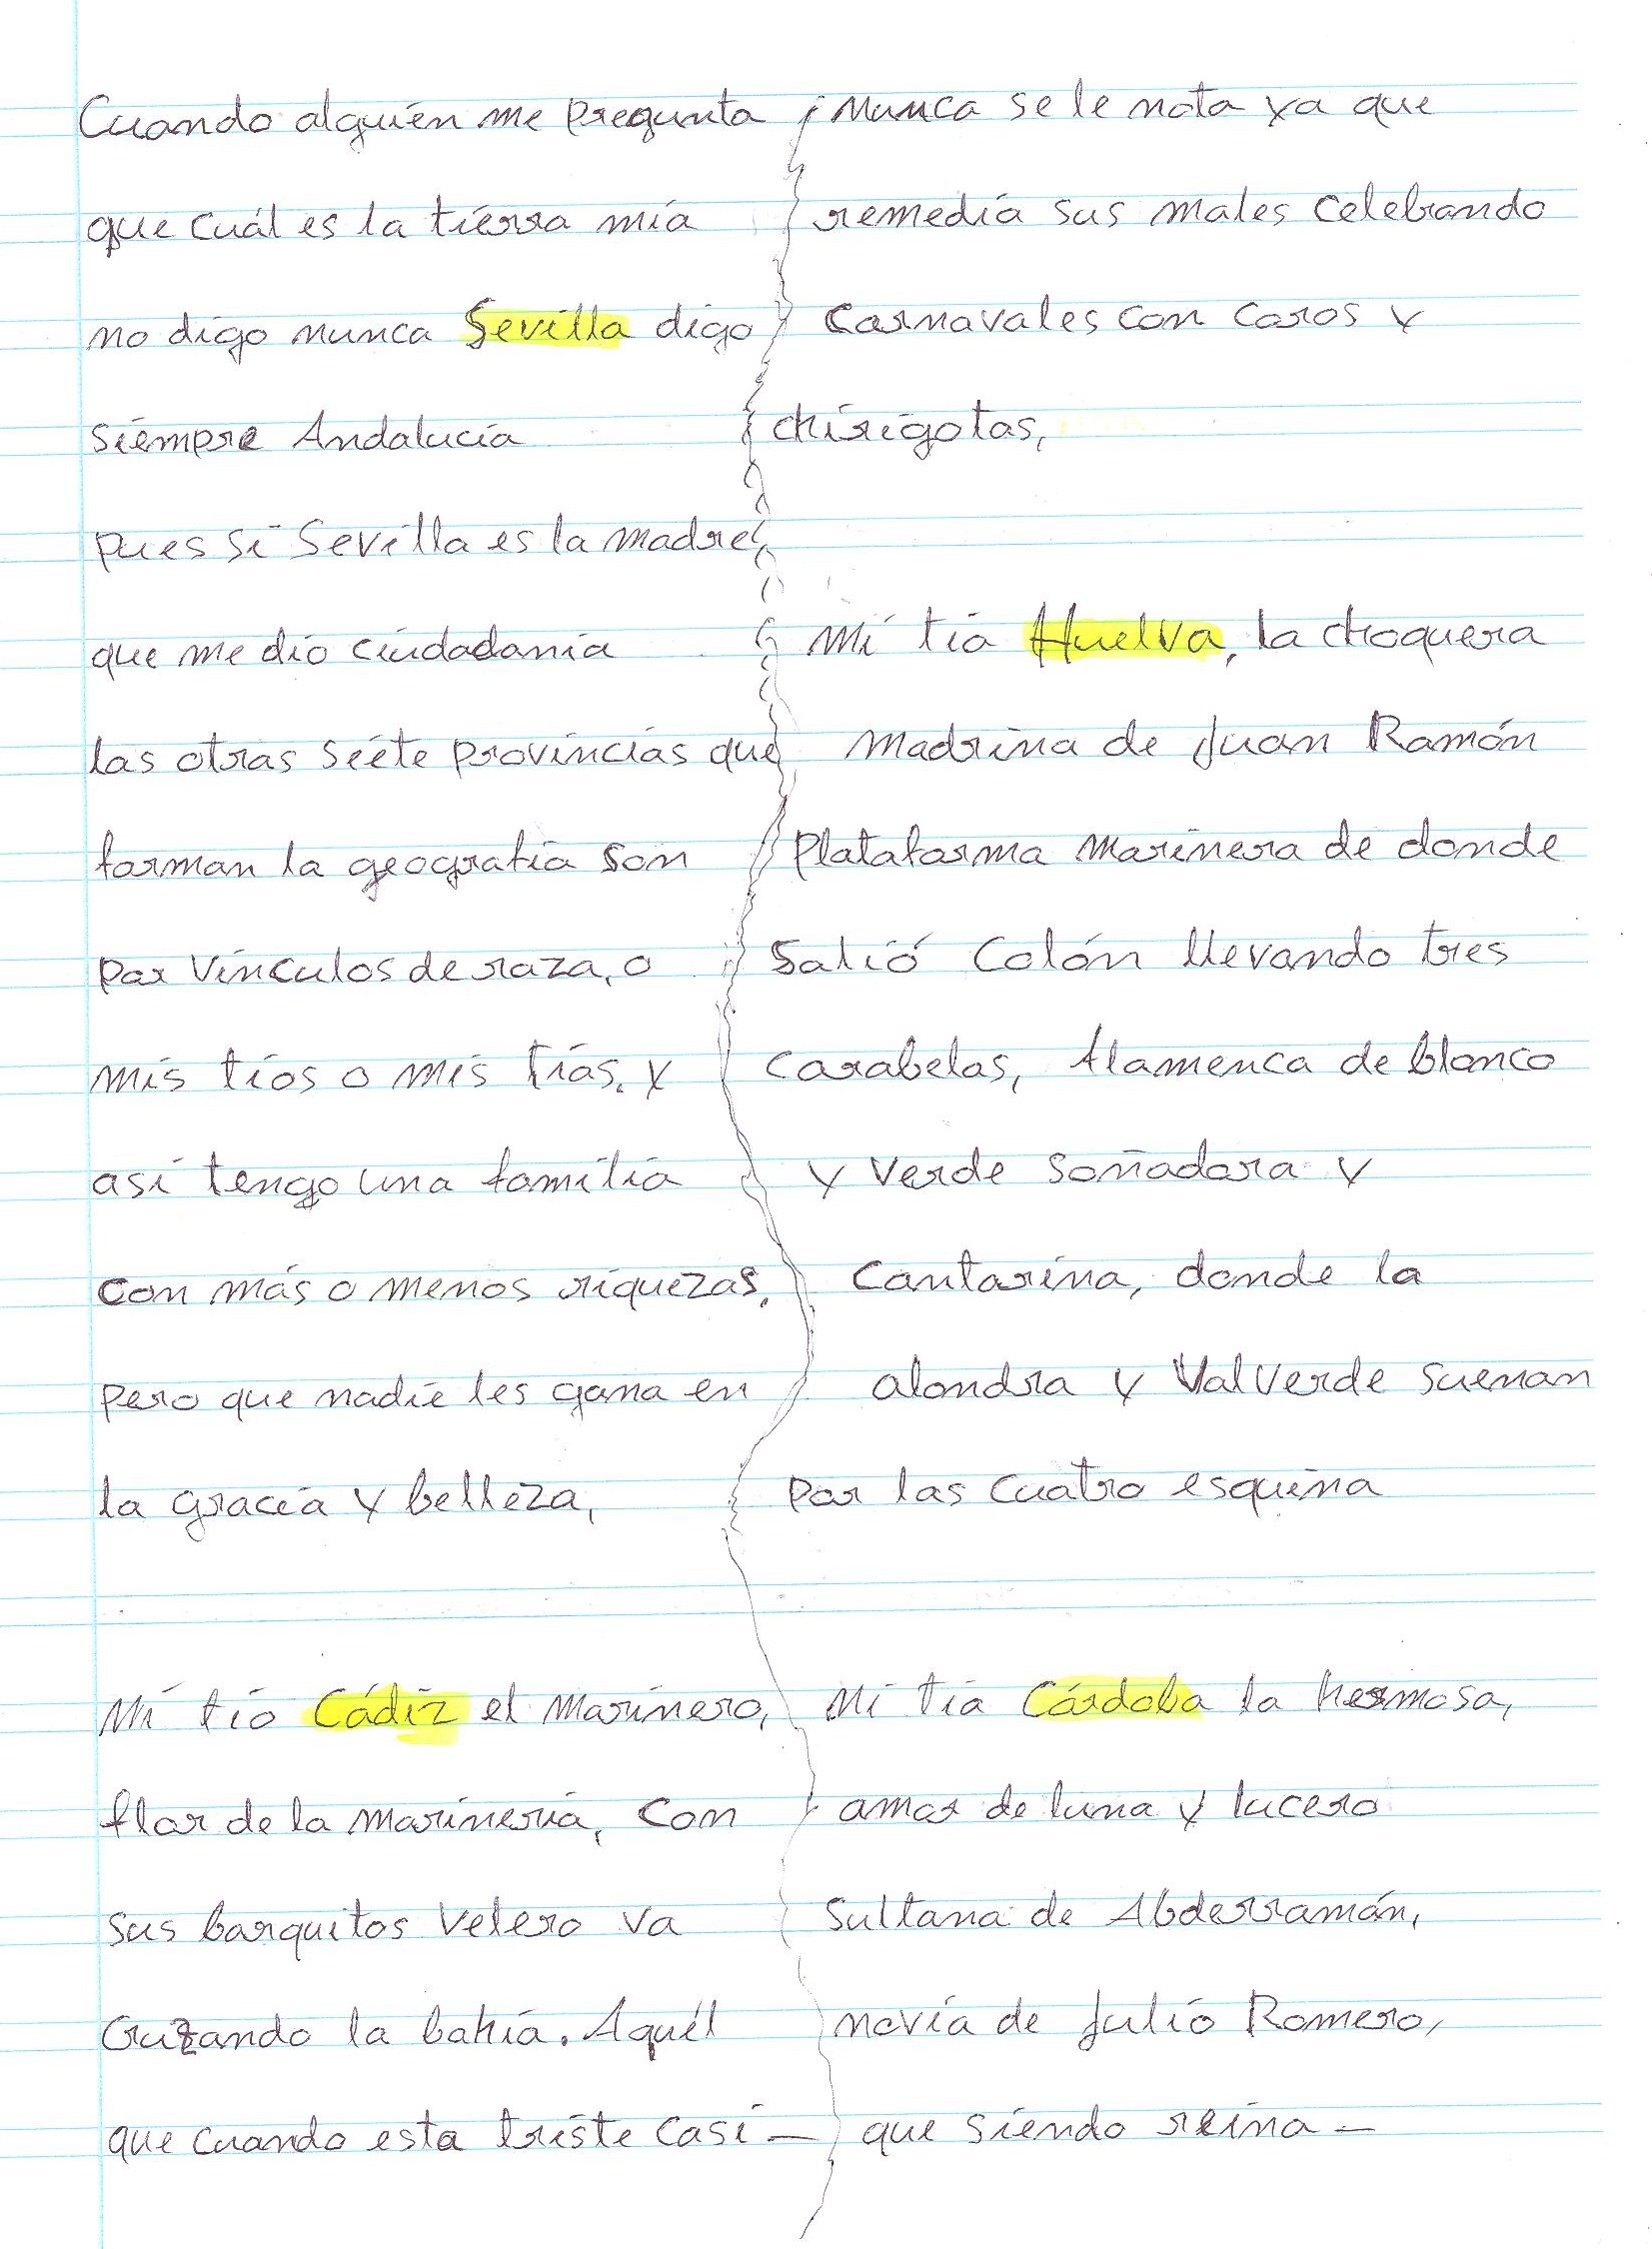 Cuando alguien me pregunta
que cuál es la tierra mía
no digo nunca Sevilla digo
siempre Andalucía
pues si Sevilla es la madre
que me dio ciudadanía
las otras siete provincias que
forman la geografía son
por vínculos de raza, o
mis tíos o mis tías. y
así tengo una familia
con más o menos riquezas,
pero que nadie les gana en
la gracia y belleza,
Mi tío Cádiz el marinero,
flor de la marinería, con
sus barquitos velero va
Cruzando la bahía. Aquél
que cuando esta triste casi —
nunca se le nota ya que
remedia sus males celebrando
Carnavales con coros y
chirigotas,
Mi tía Huelva, la choquera
madrina de Juan Ramón
Plataforma marinera de donde
Salió Colón llevando tres
carabelas, flamenca de blanco
y verde soñadora y
Cantarina, donde la
alondra y Valverde suenan
por las cuatro esquina
Mi tía Córdoba la hermosa,
amor de luna y lucero
Sultana de Abderramán,
novia de Julio Romero,
que siendo reina —